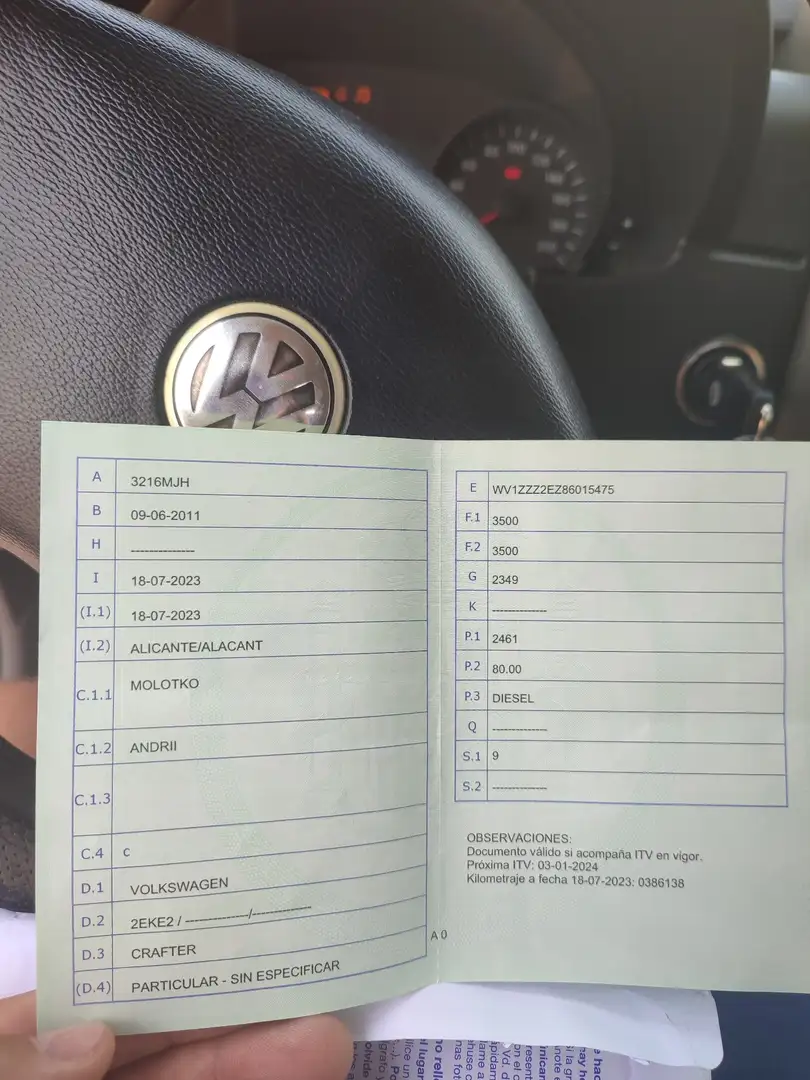 A 3216MJH
B 09-06-2011
H --------------
I 18-07-2023
(I.1) 18-07-2023
(I.2) ALICANTE/ALACANT
C.1.1 MOLOTKO
C.1.2 ANDRII
C.1.3
C.4 c
D.1 VOLKSWAGEN
D.2 2EKE2 / --------------/-------------
D.3 CRAFTER
(D.4) PARTICULAR - SIN ESPECIFICAR
A 0
E WV1ZZZ2EZ86015475
F.1 3500
F.2 3500
G 2349
K -------------
P.1 2461
P.2 80.00
P.3 DIESEL
Q -------------
S.1 9
S.2 -------------
OBSERVACIONES:
Documento válido si acompaña ITV en vigor.
Próxima ITV: 03-01-2024
Kilometraje a fecha 18-07-2023: 0386138